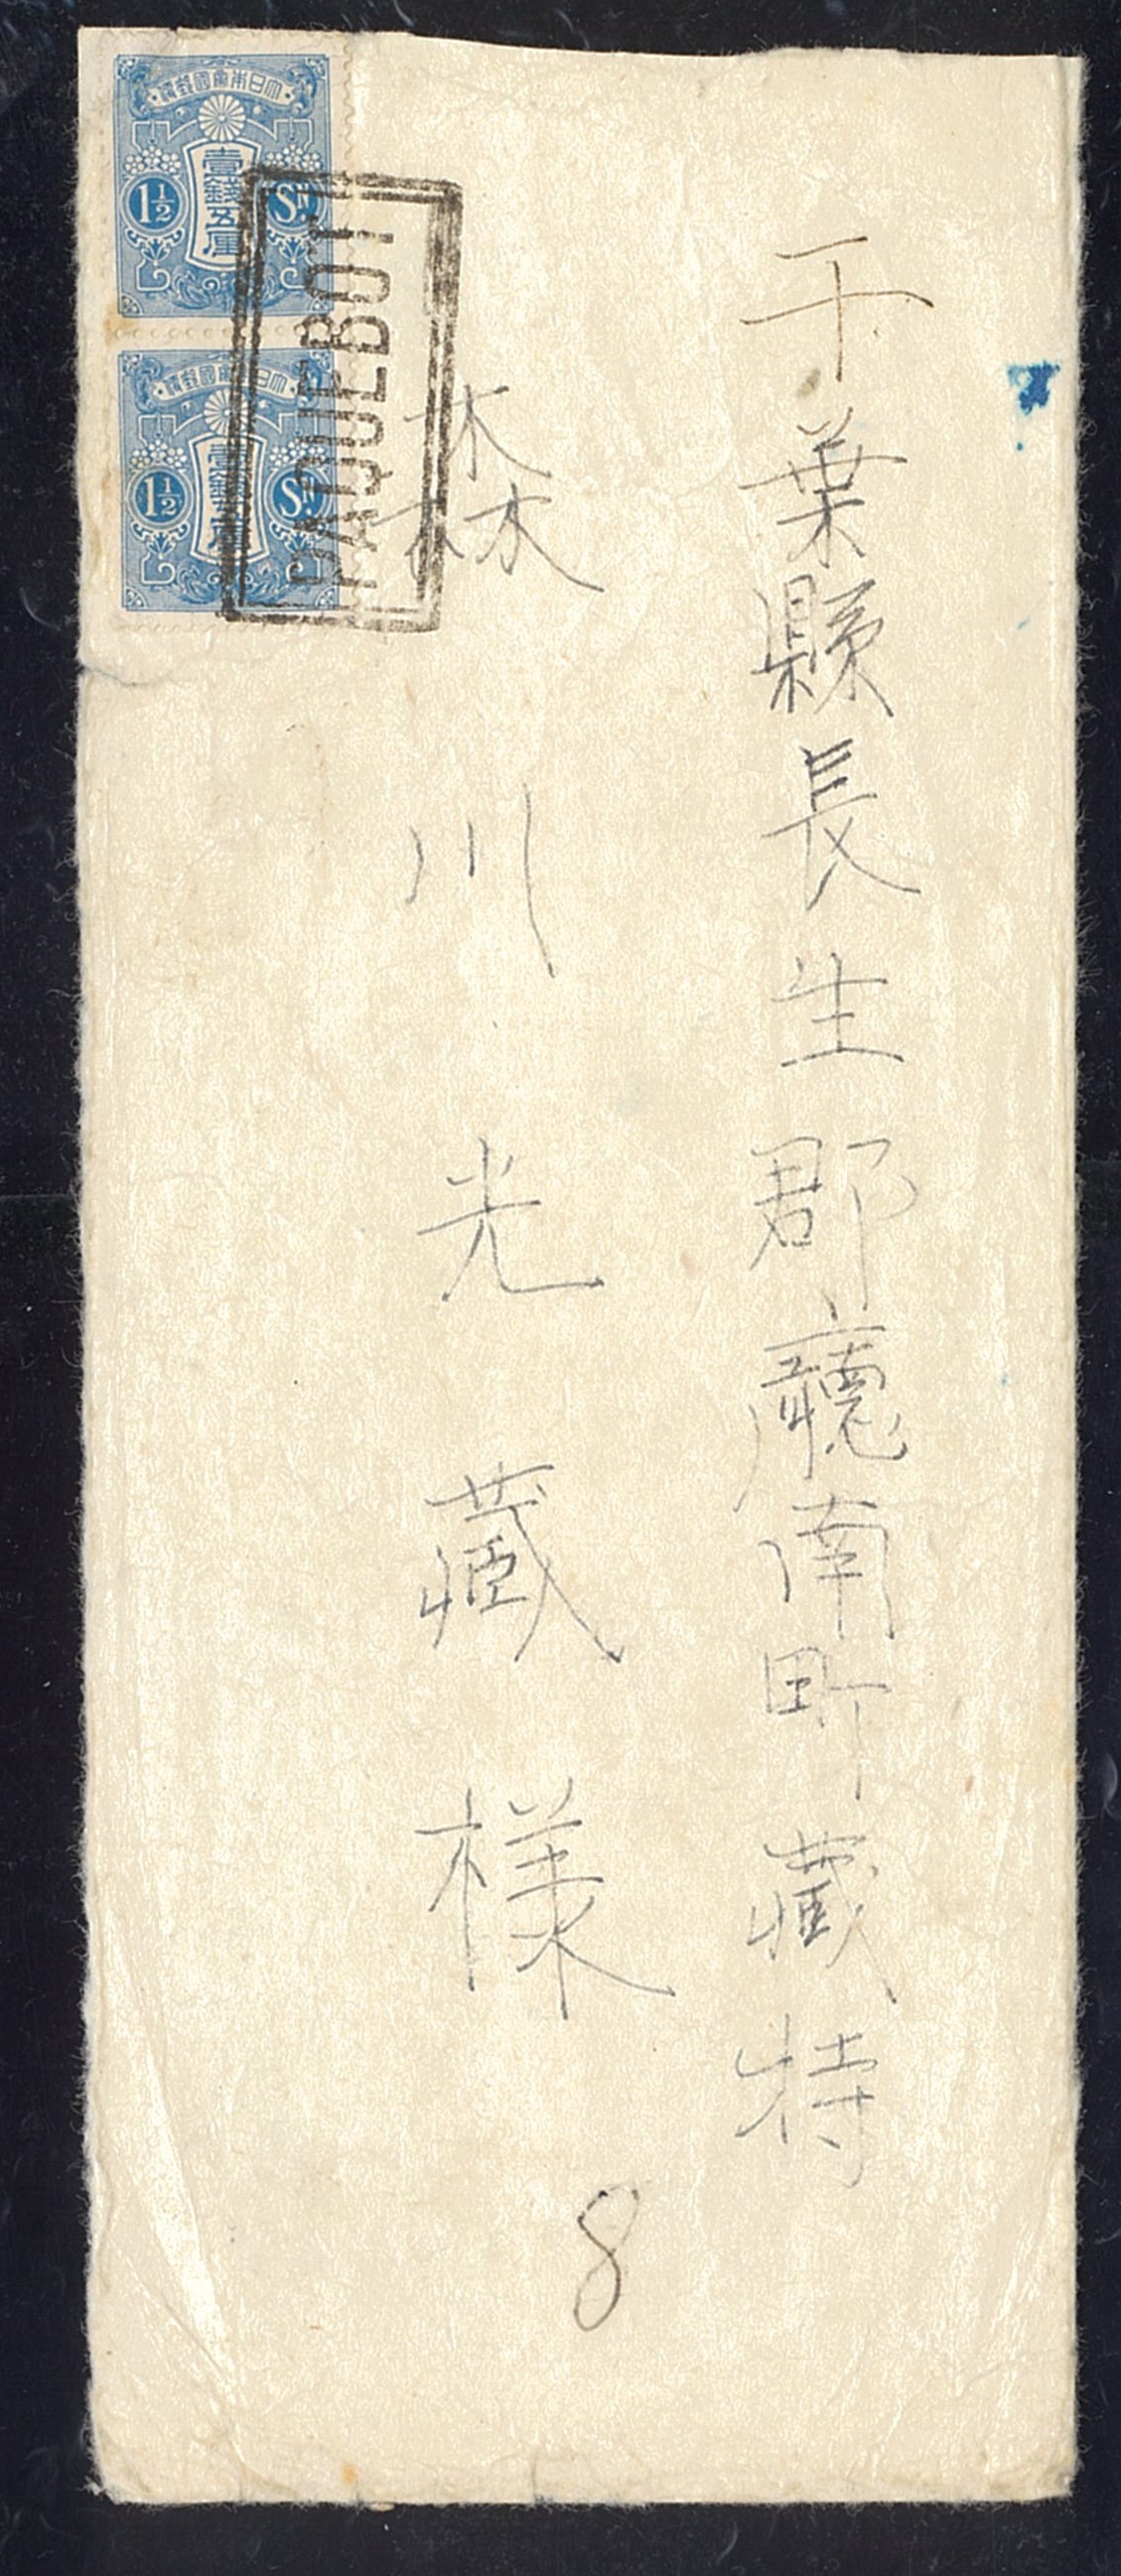 千葉縣長生郡廳南町藏持
森川光藏様
8
大日本帝國郵便
壹錢五厘
1½ Sn.
大日本帝國郵便
壹錢五厘
1½ Sn.
PAQUEBOT